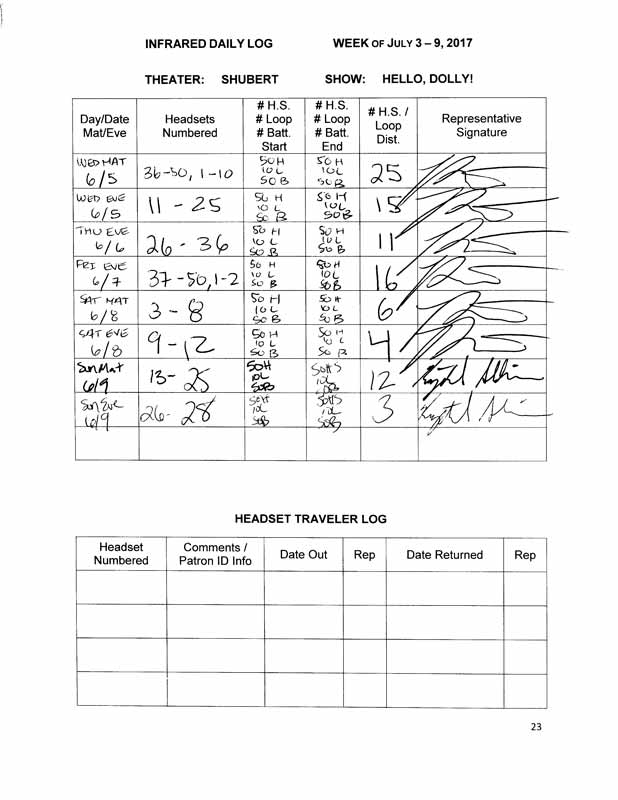 INFRARED DAILY LOG WEEK OF JULY 3 – 9, 2017
THEATER: SHUBERT SHOW: HELLO, DOLLY!
Day/Date Mat/Eve Headsets Numbered # H.S. # Loop # Batt. Start # H.S. # Loop # Batt. End # H.S. / Loop Dist. Representative Signature
WED MAT 6/5 36-50, 1-10 50 H 10 L 50 B 50 H 10 L 50 B 25
WED EVE 6/5 11 - 25 50 H 10 L 50 B 50 H 10 L 50 B 15
THU EVE 6/6 26 - 36 50 H 10 L 50 B 50 H 10 L 50 B 11
FRI EVE 6/7 37-50, 1-2 50 H 10 L 50 B 50 H 10 L 50 B 16
SAT MAT 6/8 3 - 8 50 H 10 L 50 B 50 H 10 L 50 B 6
SAT EVE 6/8 9 - 12 50 H 10 L 50 B 50 H 10 L 50 B 4
Sun Mat 6/9 13- 25 50H 10L 50B 50HS 10L 12
Sun Eve 6/9 26- 28 50H 10L 50B 50HS 10L 50B 3
HEADSET TRAVELER LOG
Headset Numbered Comments / Patron ID Info Date Out Rep Date Returned Rep
23